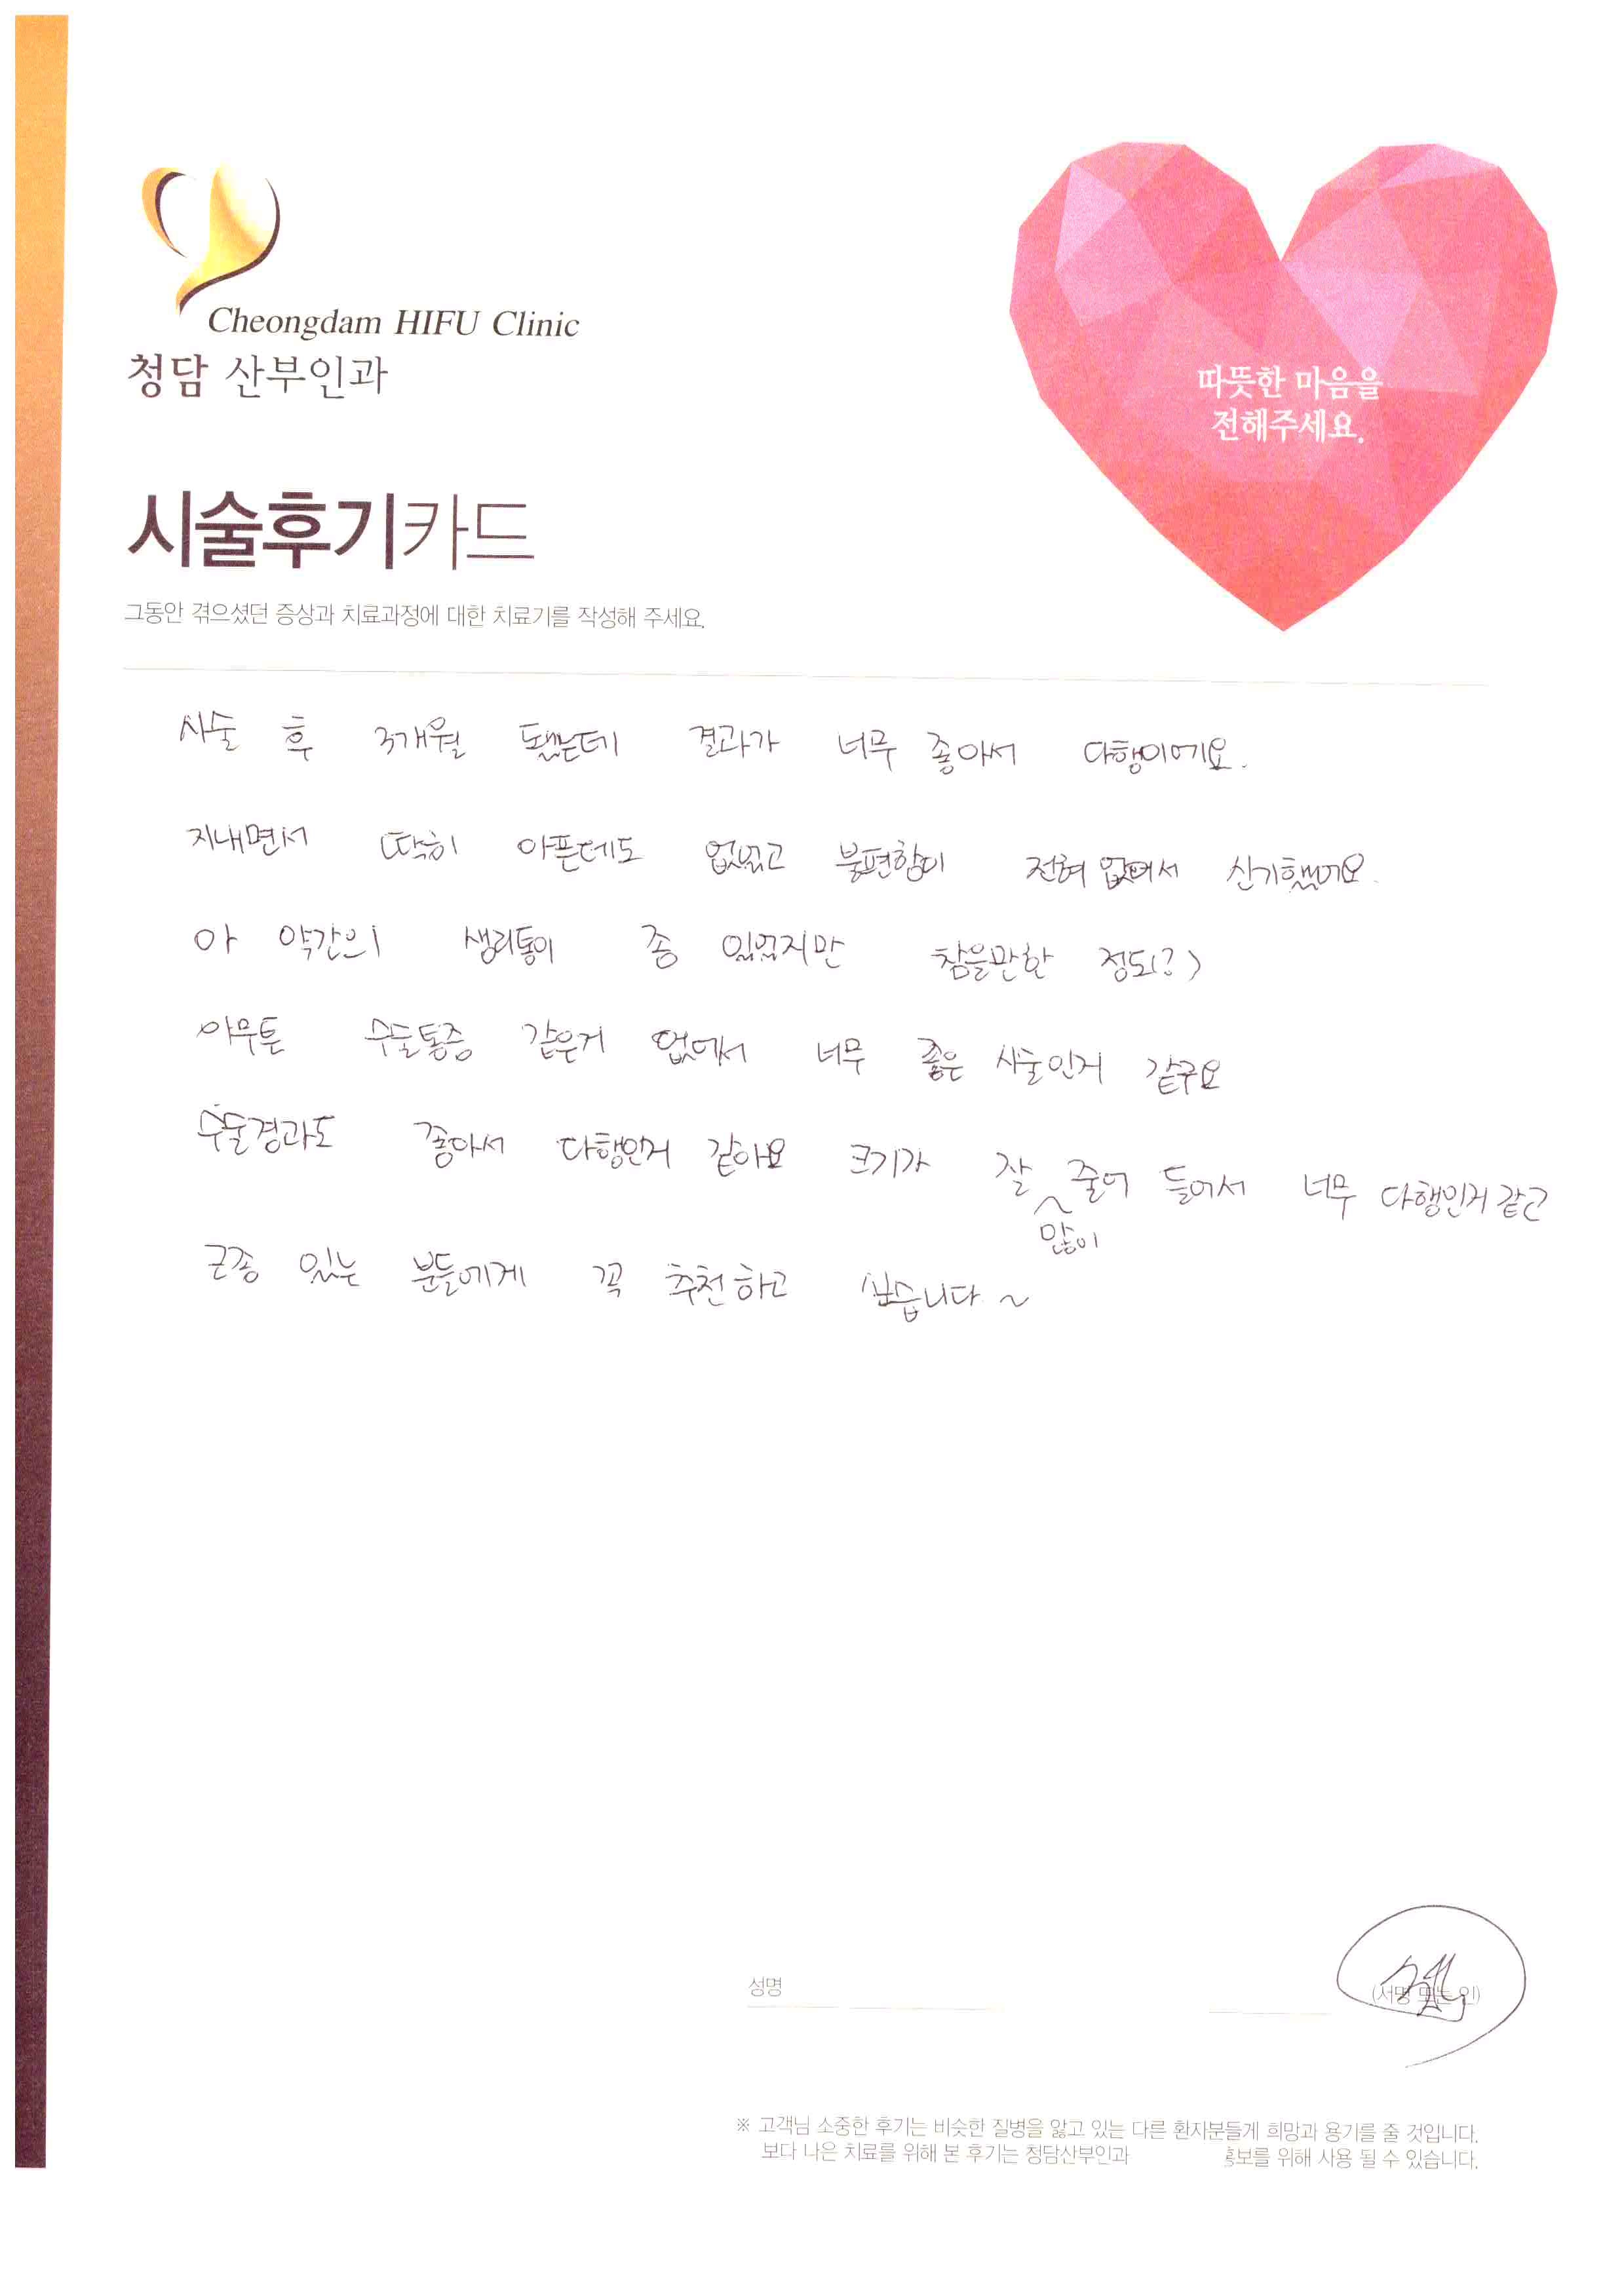 Cheongdam HIFU Clinic
청담 산부인과
따뜻한 마음을
전해주세요.
시술후기카드
그동안 겪으셨던 증상과 치료과정에 대한 치료기를 작성해 주세요.
시술 후 3개월 됐는데 결과가 너무 좋아서 다행이에요.
지내면서 딱히 아픈데도 없었고 불편함이 전혀 없어서 신기했어요.
아 약간의 생리통이 좀 있었지만 참을만한 정도(?)
아무튼 수술통증 같은거 없어서 너무 좋은 시술인거 같구요
수술경과도 좋아서 다행인거 같아요 크기가 잘 줄어 들어서 너무 다행인거 같고
많이
근종 있는 분들에게 꼭 추천하고 싶습니다~
성명
(서명 또는 인)
※ 고객님 소중한 후기는 비슷한 질병을 앓고 있는 다른 환자분들게 희망과 용기를 줄 것입니다.
보다 나은 치료를 위해 본 후기는 청담산부인과 홍보를 위해 사용 될 수 있습니다.